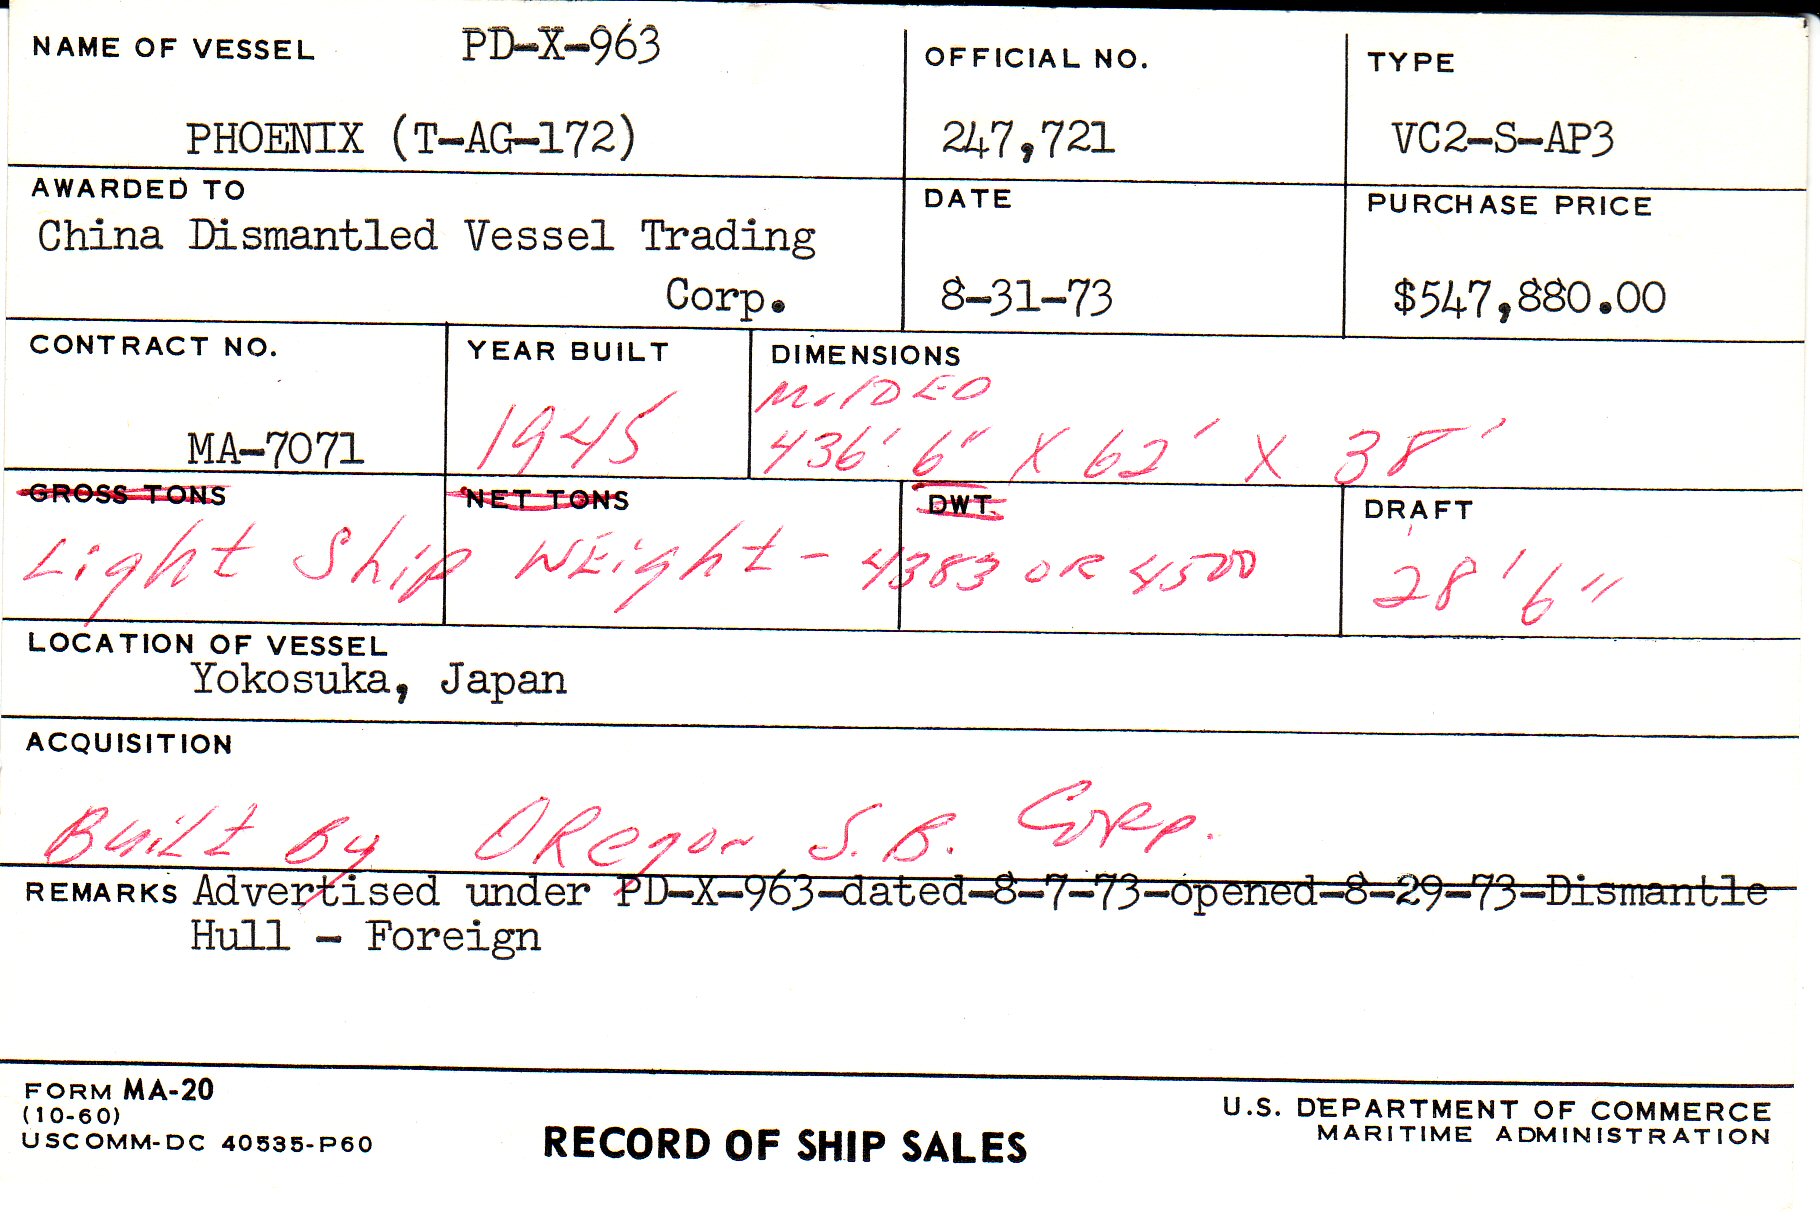 NAME OF VESSEL PD-X-963 OFFICIAL NO. TYPE
PHOENIX (T-AG-172) 247,721 VC2-S-AP3
AWARDED TO DATE PURCHASE PRICE
China Dismantled Vessel Trading
Corp. 8-31-73 $547,880.00
CONTRACT NO. YEAR BUILT DIMENSIONS
MA-7071 1945 436' 6" X 62' X 38'
GROSS TONS NET TONS DWT. DRAFT
Light Ship Weight - 4383 OR 4500 28' 6"
LOCATION OF VESSEL
Yokosuka, Japan
ACQUISITION
Built By Oregon S.B. Corp.
REMARKS Advertised under PD-X-963-dated-8-7-73-opened-8-29-73-Dismantle
Hull - Foreign
FORM MA-20
(10-60)
USCOMM-DC 40535-P60
RECORD OF SHIP SALES
U.S. DEPARTMENT OF COMMERCE
MARITIME ADMINISTRATION